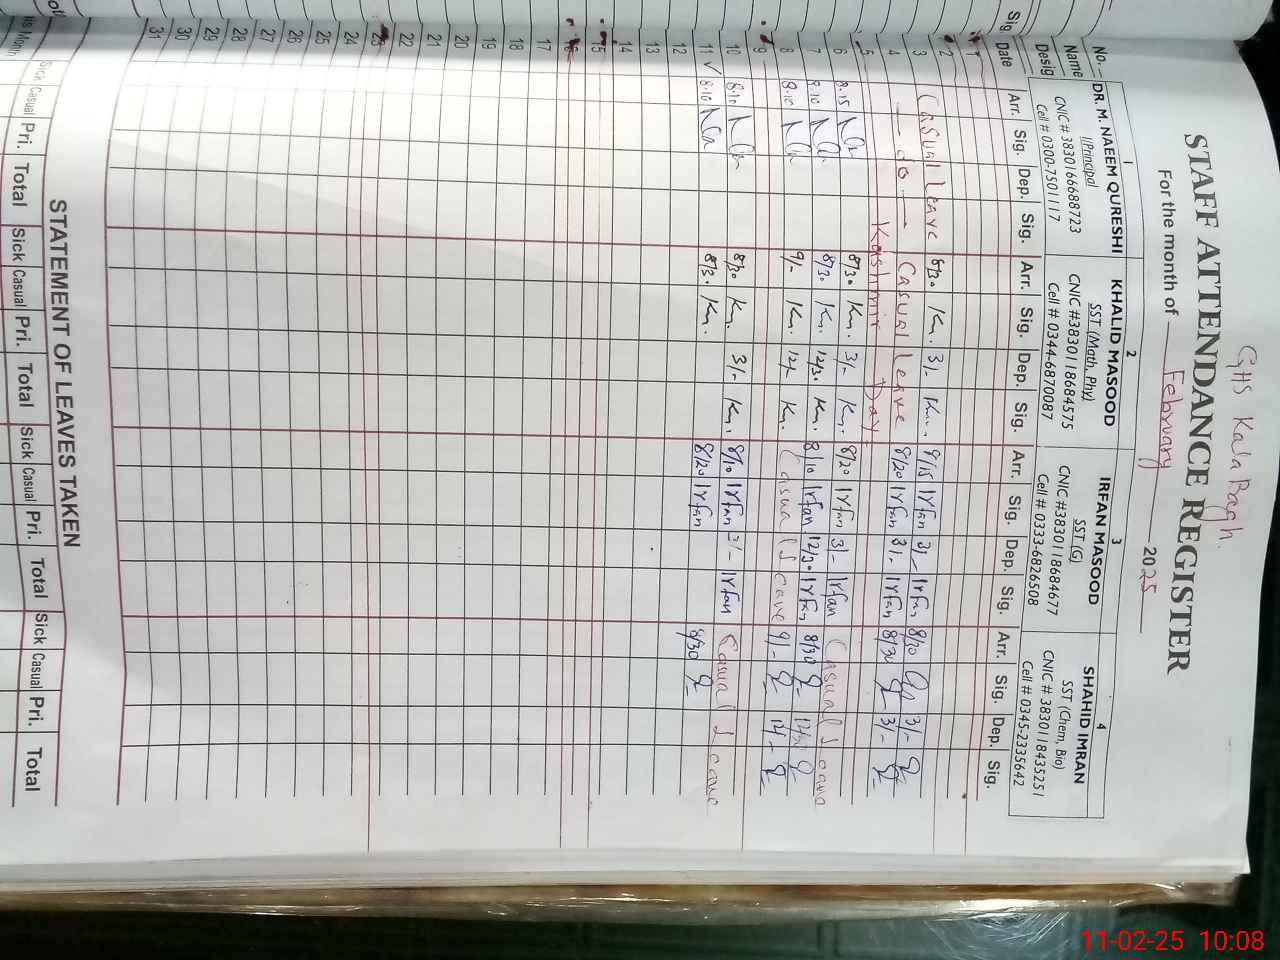 GHS Kala Bagh.
STAFF ATTENDANCE REGISTER
For the month of February 2025
No. 1 2 3 4
Name DR. M. NAEEM QURESHI KHALID MASOOD IRFAN MASOOD SHAHID IMRAN
Desig I/Principal SST (Math, Phy) SST (G) SST (Chem, Bio)
CNIC # 3830166688723 CNIC #3830118684575 CNIC #38301118684677 CNIC # 3830118435251
Cell # 0300-7501117 Cell # 0344-6870087 Cell # 0333-6826508 Cell # 0345-2335642
Sig. Date Arr. Sig. Dep. Sig. Arr. Sig. Dep. Sig. Arr. Sig. Dep. Sig. Arr. Sig. Dep. Sig.
1
2
3 Casual Leave 8/30 Km. 3/- Km. 9/15 Irfan 3/- Irfan 8/20 3/-
4 do Casual Leave 8/20 Irfan 3/- Irfan 8/30 3/-
5 Kashmir Day
6 8.15 8/30 Km. 3/- Km. 8/20 Irfan 3/- Irfan Casual Leave
7 8.10 8/30 Km. 12/30 Km. 8/10 Irfan 12/30 Irfan 8/30 12/30
8 8.10 9/- Km. 12/- Km. Casual Leave 9/- 12/-
9
10 8.10 8/30 Km. 3/- Km. 8/10 Irfan 3/- Irfan Casual Leave
11 8.10 8/30 Km. 8/20 Irfan 8/30
12
13
14
15
16
17
18
19
20
21
22
23
24
25
26
27
28
29
30
31
STATEMENT OF LEAVES TAKEN
Sick Casual Pri. Total Sick Casual Pri. Total Sick Casual Pri. Total Sick Casual Pri. Total
Month
11-02-25 10:08